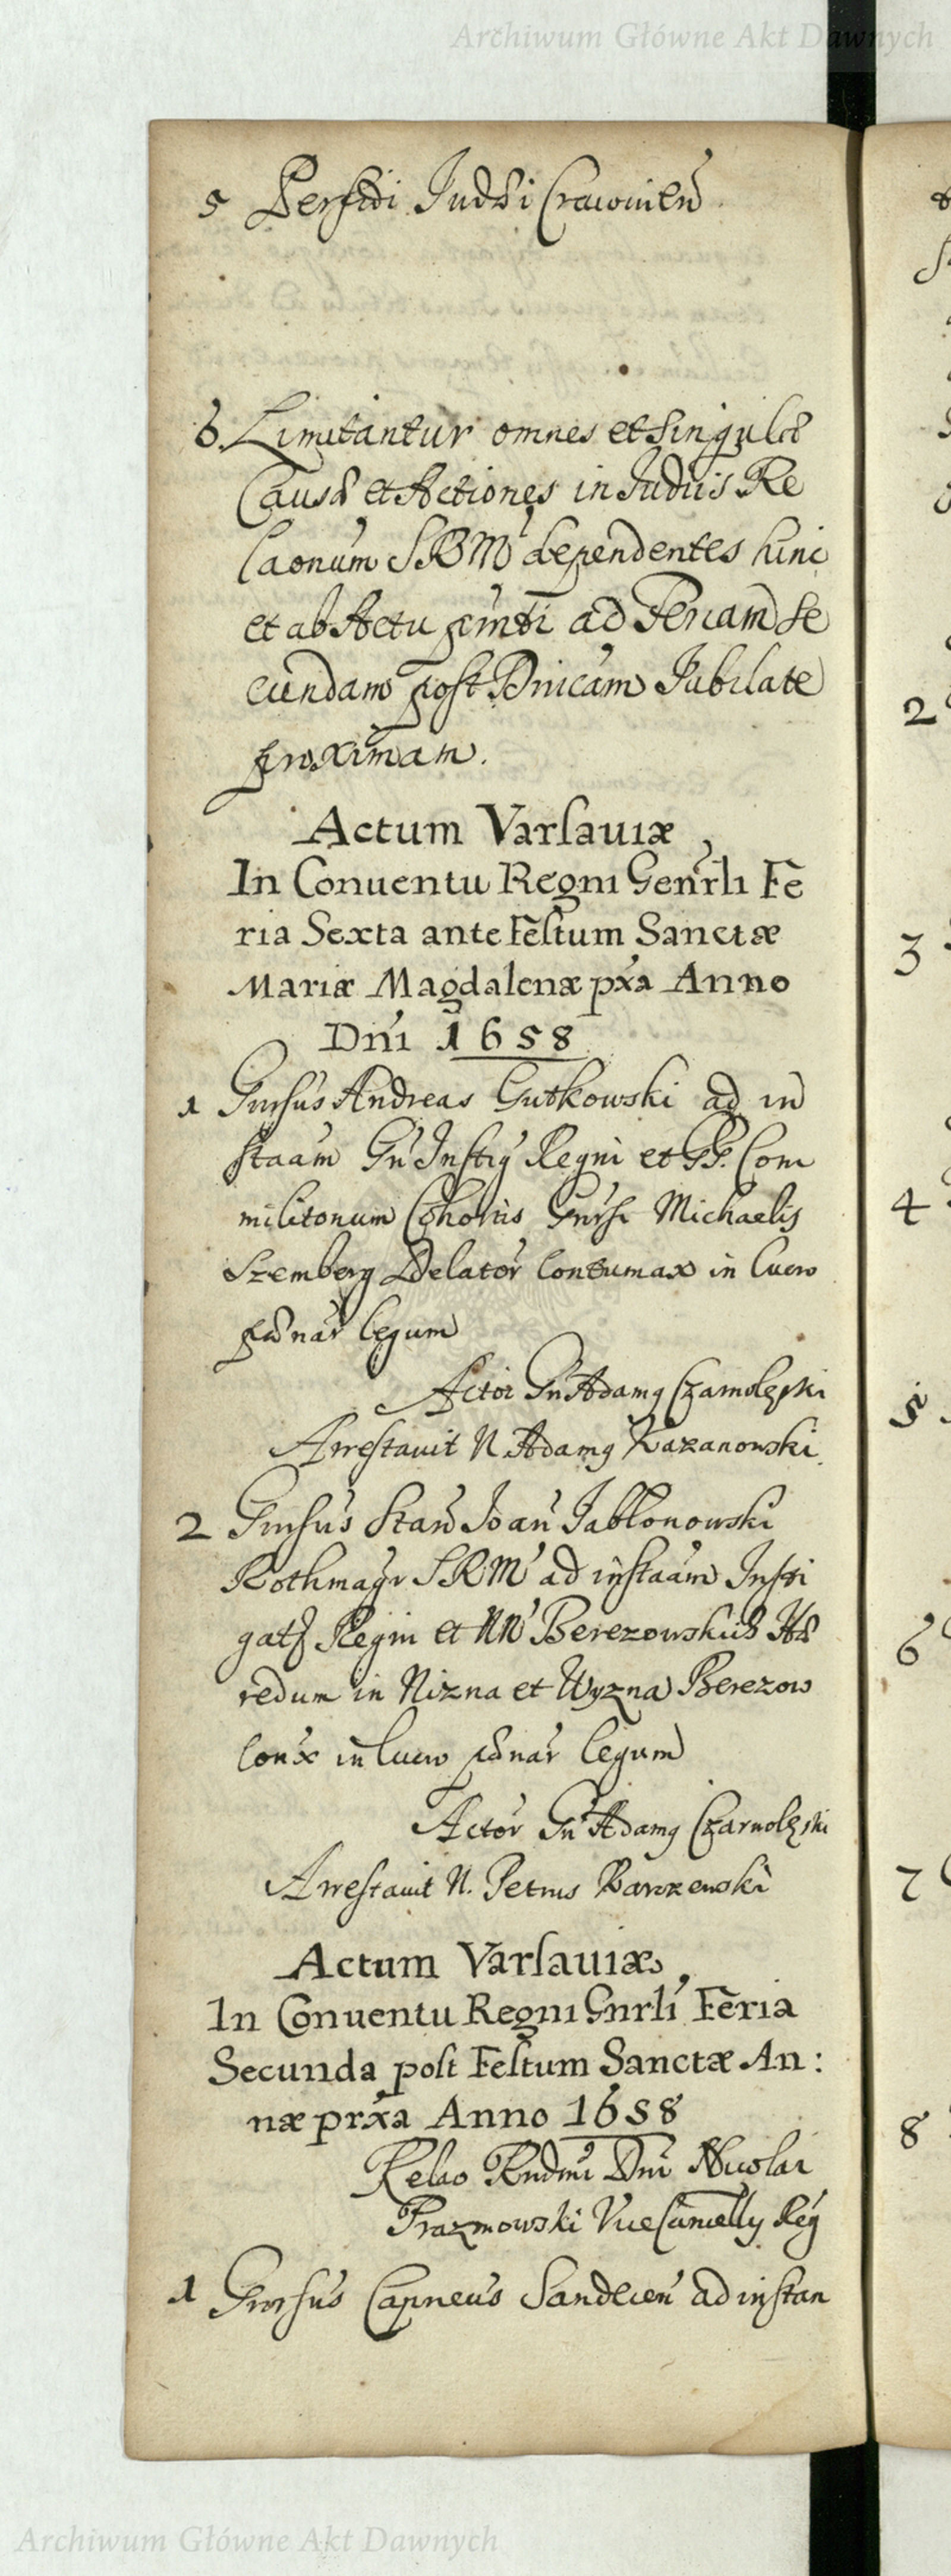 Archiwum Główne Akt Dawnych
5 Perfidi Judæi Cracovien
6. Limitantur omnes et singulæ
Causæ et Actiones in Judiis Re
laonum SRM dependentes hinc
et ab Actu pnti ad Feriam Se
cundam post Dnicam Jubilate
proximam.
Actum Varsauiæ
In Conuentu Regni Genrli Fe
ria Sexta ante Festum Sanctæ
Mariæ Magdalenæ pxa Anno
Dni 1658
1 Gnrsus Andreas Gutkowski ad in
staam Gn Instig Regni et GG. Com
militonum Cohortis Gnrsi Michaelis
Szemberg Delator Contumax in lucro
pænar legum
Actor Gn Adamg Czarnolęski
Arrestauit N Adamg Kazanowski.
2 Gnrsus Stan Joan Jabłonowski
Rothmagr SRM ad instaam Insti
gats Regni et NN Berezowskich Hæ
redum in Nizna et Wyzna Berezow
Conx in lucro pænar legum
Actor Gn Adamg Czarnolęski
Arrestauit N. Petrus
Actum Varsauiæ
In Conuentu Regni Gnrli Feria
Secunda post Festum Sanctæ An:
næ prxa Anno 1658
Relao Rndmi Dni Nicolai
Prazmowski ViceCancelly Reg
1 Gnrsus Capneus Sandecen ad instan
2
3
4
5
6
7
8
Archiwum Główne Akt Dawnych